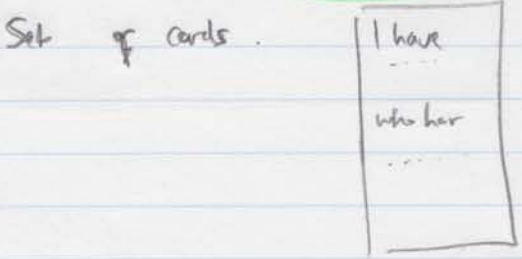 Set of cards.
I have
.....
who has
.....